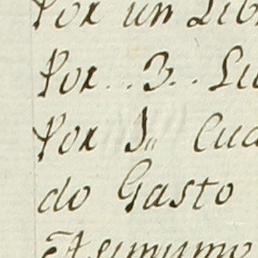 Por un Lib
Por.. 3.. Lu
Por 1,, Cua
do Gasto